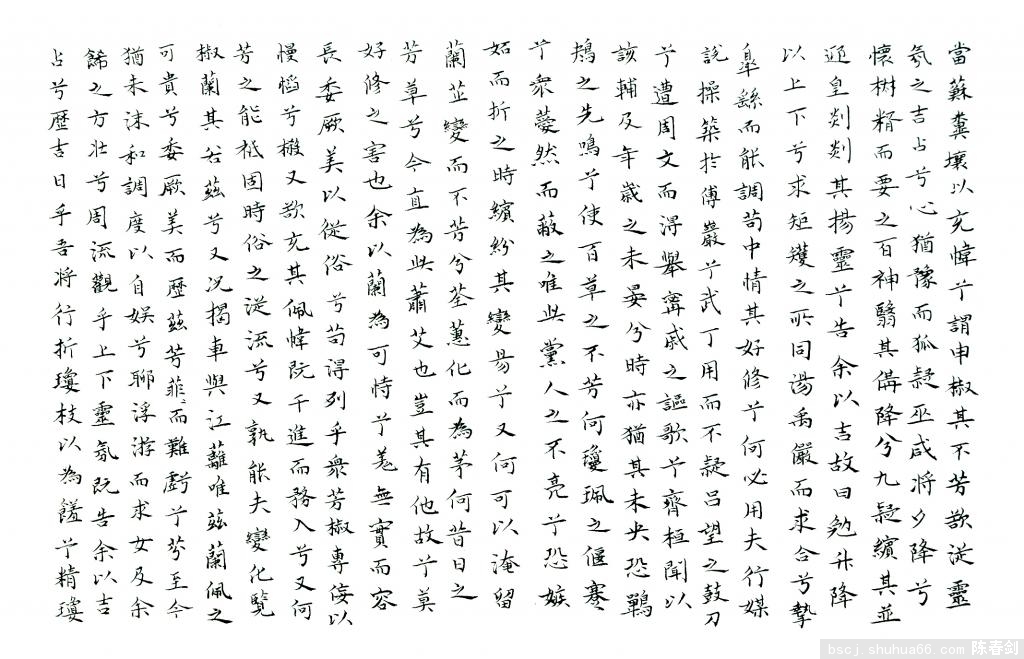 當蘇糞壤以充幃兮謂申椒其不芳欲從靈
氛之吉占兮心猶豫而狐疑巫咸將夕降兮
懷椒糈而要之百神翳其備降兮九疑繽其並
迎皇剡剡其揚靈兮告余以吉故曰勉升降
以上下兮求矩矱之所同湯禹嚴而求合兮摯
皋繇而能調苟中情其好修兮何必用夫行媒
說操築於傅巖兮武丁用而不疑呂望之鼓刀
兮遭周文而得舉甯戚之謳歌兮齊桓聞以
該輔及年歲之未晏兮時亦猶其未央恐鵜
鴂之先鳴兮使百草之不芳何瓊珮之偃蹇
兮眾薆然而蔽之唯此黨人之不亮兮恐嫉
妬而折之時繽紛其變易兮又何可以淹留
蘭芷變而不芳兮荃蕙化而為茅何昔日之
芳草兮今直為此蕭艾也豈其有他故兮莫
好修之害也余以蘭為可恃兮羌無實而容
長委厥美以從俗兮苟得列乎眾芳椒專佞以
慢慆兮樧又欲充其佩幃既干進而務入兮又何
芳之能祗固時俗之從流兮又孰能夫變化覽
椒蘭其若茲兮又況揭車與江蘺唯茲蘭佩之
可貴兮委厥美而歷茲芳菲〻而難虧兮芬至今
猶未沬和調度以自娛兮聊浮游而求女及余
飾之方壯兮周流觀乎上下靈氛既告余以吉
占兮歷吉日乎吾將行折瓊枝以為饈兮精瓊
bscj.shuhua66.com 陈春剑